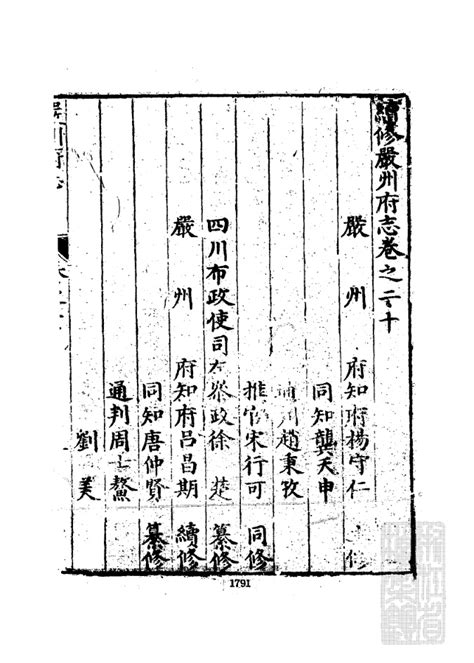 續修嚴州府志卷之二十
嚴州府知府楊守仁 修
同知龔天申
通判趙秉孜
推官宋行可 同修
四川布政使司右參政徐楚 纂修
嚴州府知府呂昌期 續修
同知唐仲賢 纂修
通判周士鰲
劉美
嚴州府志
1791